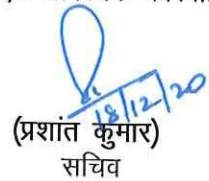 18/12/20
(प्रशांत कुमार)
सचिव